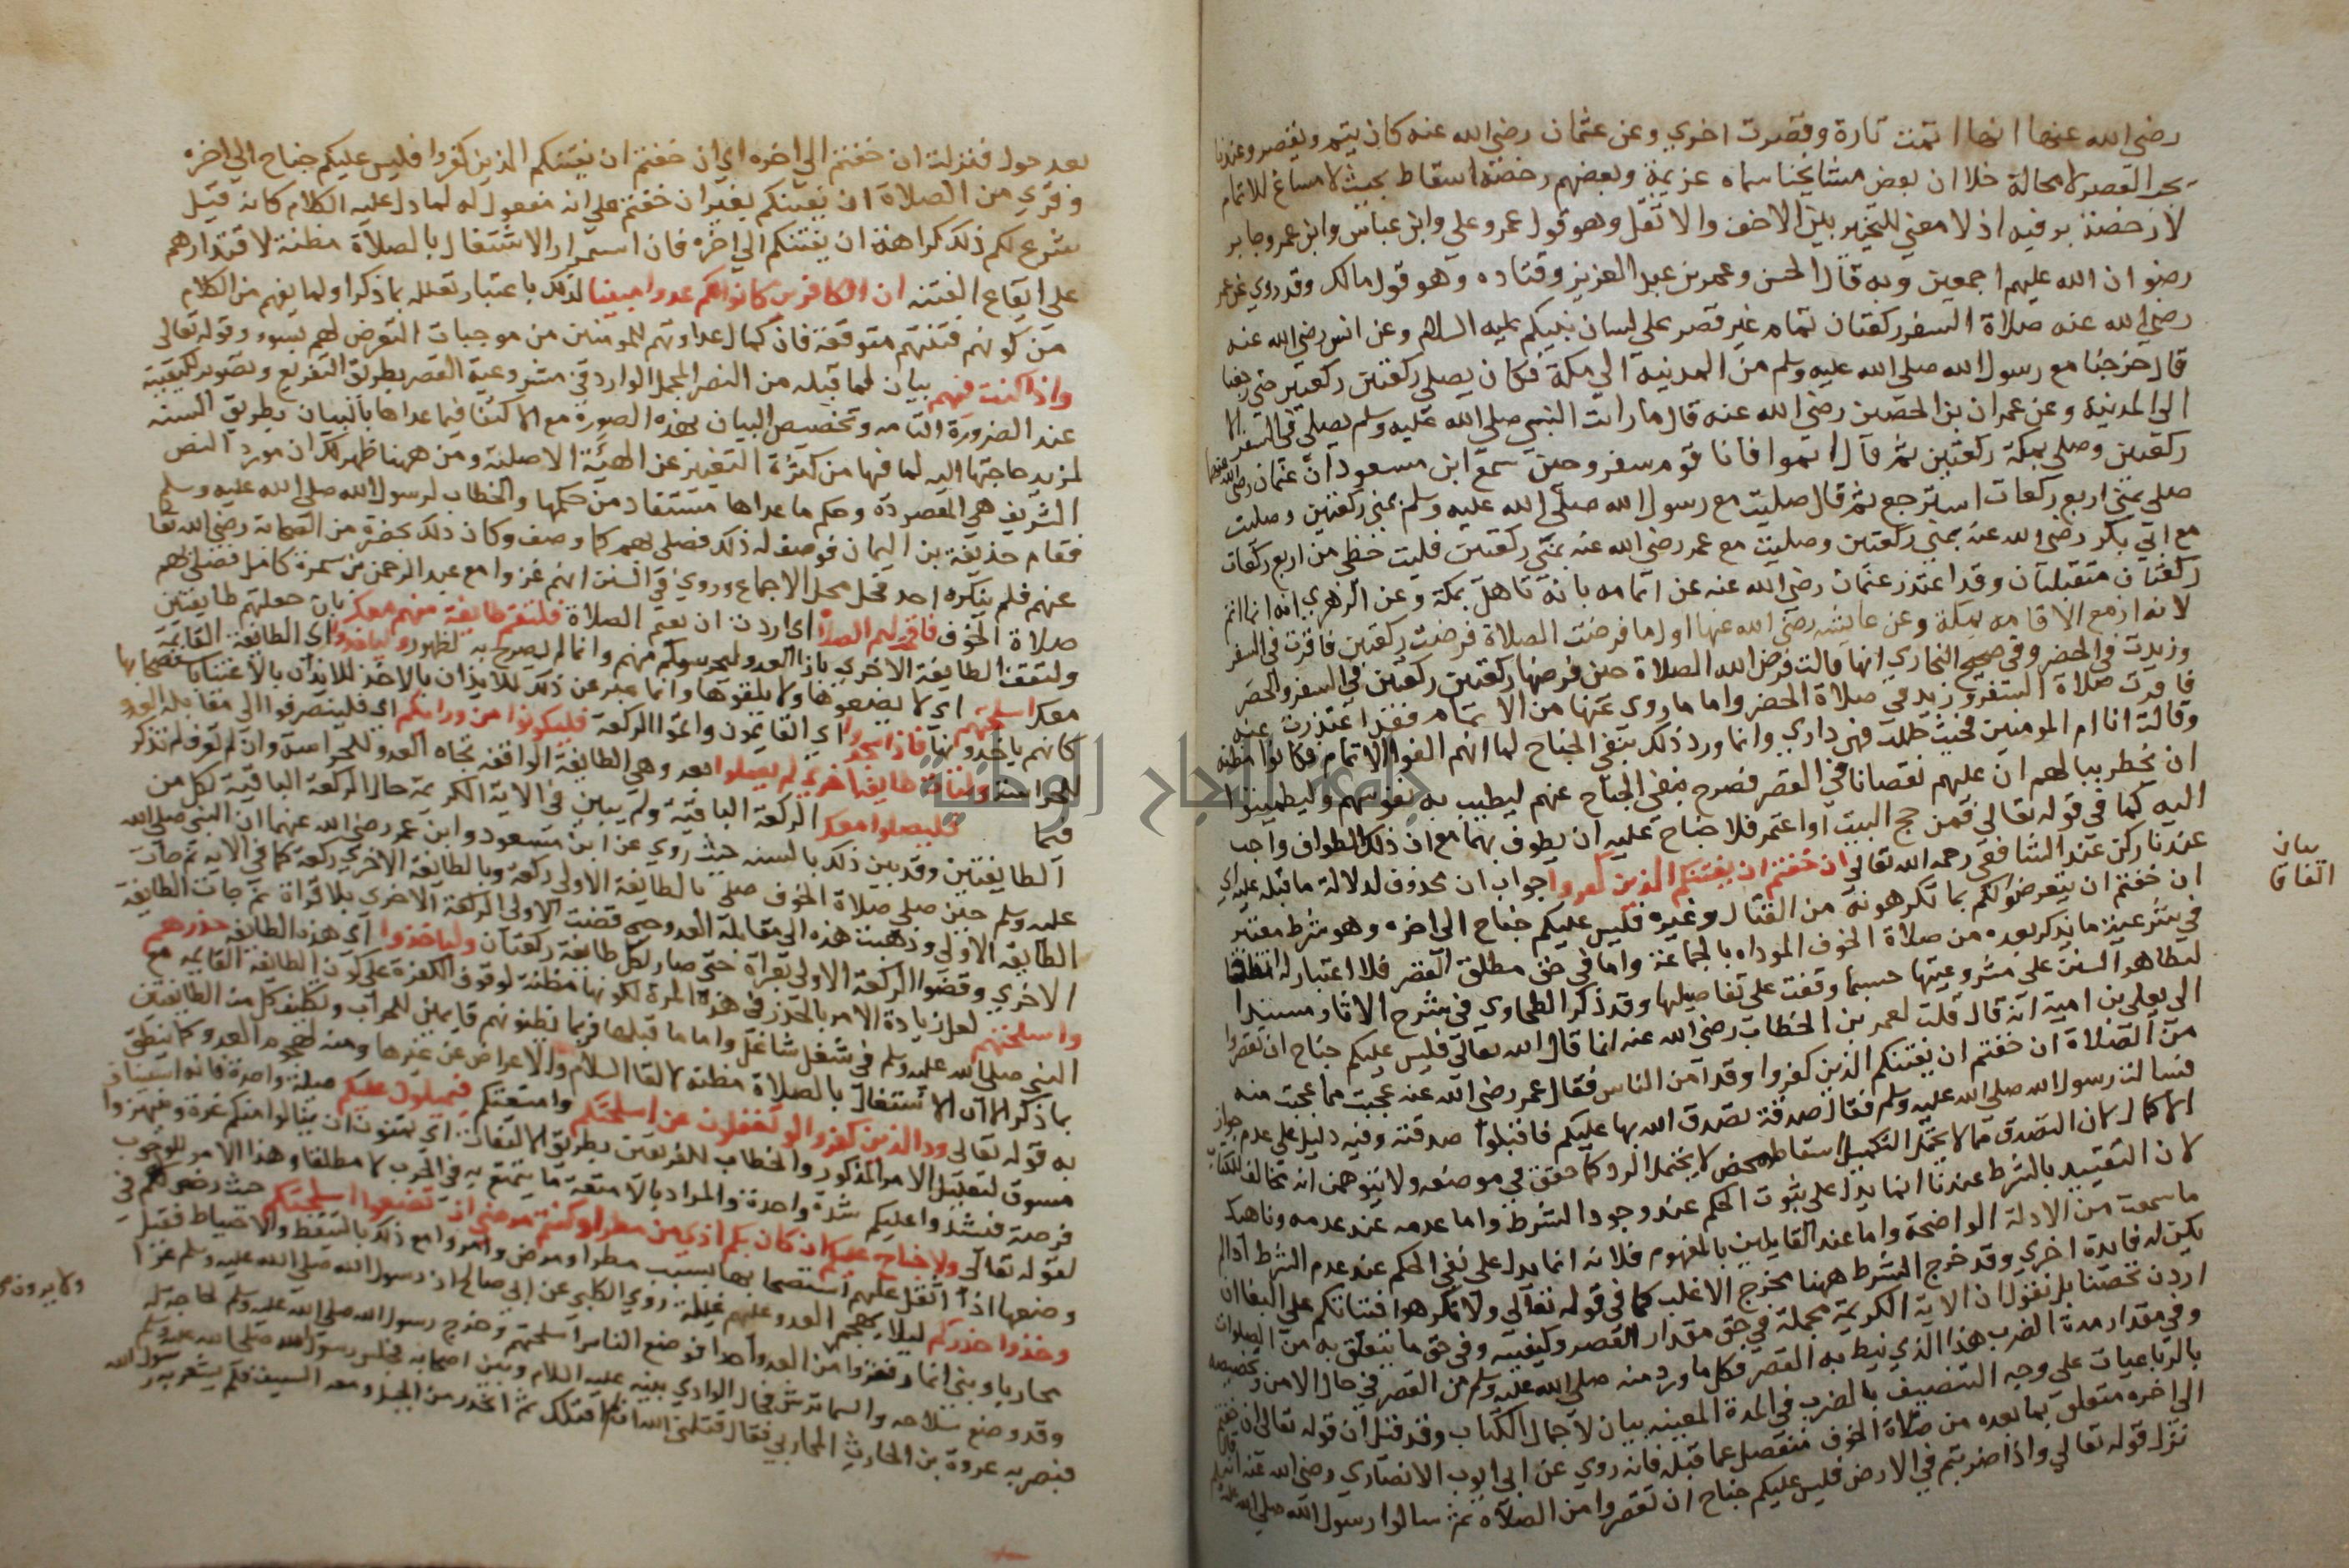 رضي الله عنها انها اتمت تارة وقصرت اخري وعن عثمان رضي الله عنه كان يتم ويقصر وعندنا
يجب القصر لا محالة خلا ان بعض مشايخنا سماه عزيمة وبعضهم رخصة اسقاط بحيث لا مساغ للاتمام
لا رخصة ترفيه اذ لا معني للتخيير بين الاخف والاثقل وهو قول عمر وعلي وابن عباس وابن عمر وجابر
رضوان الله عليهم اجمعين وبه قال الحسن وعمر بن عبد العزيز وقتاده وهو قول مالك وقد روي عن عمر
رضي الله عنه صلاة السفر ركعتان تمام غير قصر علي لسان نبيكم عليه السلام وعن انس رضي الله عنه
قال خرجنا مع رسول الله صلي الله عليه وسلم من المدينة الي مكة فكان يصلي ركعتين ركعتين حتي رجعنا
الي المدينة وعن عمران بن الحصين رضي الله عنه قال ما رايت النبي صلي الله عليه وسلم يصلي في السفر الا
ركعتين وصلي بمكة ركعتين ثم قال اتموا فانا قوم سفر وحين سمع ابن مسعود ان عثمان رضي الله عنهما
صلي بمني اربع ركعات استرجع ثم قال صليت مع رسول الله صلي الله عليه وسلم بمني ركعتين وصليت
مع ابي بكر رضي الله عنه بمني ركعتين وصليت مع عمر رضي الله عنه بمني ركعتين فليت حظي من اربع ركعات
ركعتان متقبلتان وقد اعتذر عثمان رضي الله عنه عن اتمامه بانه تاهل بمكة وعن الزهري انه انما اتم
لانه ازمع الاقامه بمكة وعن عايشه رضي الله عنها اول ما فرضت الصلاة فرضت ركعتين فاقرت في السفر
وزيدت في الحضر وفي صحيح البخاري انها قالت فرض الله الصلاة حين فرضها ركعتين ركعتين في السفر والحضر
فاقرت صلاة السفر وزيد في صلاة الحضر واما ما روي عنها من الاتمام فقد اعتذرت عنه
وقالت انا ام المومنين فحيث حللت فهي داري وانما ورد ذلك بنفي الجناح لما انهم الفوا الاتمام فكانوا مظنه
ان يخطر ببالهم ان عليهم نقصانا في القصر فصرح بنفي الجناح عنهم ليطيب به نفوسهم وليطمينوا
اليه كما في قوله تعالي فمن حج البيت او اعتمر فلا جناح عليه ان يطوف بهما مع ان ذلك الطواف واجب
عندنا ركن عند الشافعي رحمه الله تعالي ان خفتم ان يفتنكم الذين كفروا جواب ان محذوف لدلالة ما قبله عليه اي
ان خفتم ان يتعرضوا لكم بما تكرهونه من القتال وغيره فليس عليكم جناح الي اخره وهو شرط معتبر
في شرعية ما يذكر بعده من صلاة الخوف المودّاه بالجماعة واما في حق مطلق القصر فلا اعتبار له اتفاقا
لتظاهر السنن علي مشروعيتها حسبما وقفت علي تفاصيلها وقد ذكر الطحاوي في شرح الاثار مسندا
الي يعلي بن امية انه قال قلت لعمر بن الخطاب رضي الله عنه انما قال الله تعالي فليس عليكم جناح ان تقصروا
من الصلاة ان خفتم ان يفتنكم الذين كفروا وقد آمن الناس فقال عمر رضي الله عنه عجبت مما عجبت منه
فسالت رسول الله صلي الله عليه وسلم فقال صدقة تصدق الله بها عليكم فاقبلوا صدقته وفيه دليل علي عدم جواز
الاكمال لان التصدق مما لا يحتمل التمليك اسقاط محض لا يحتمل الرد كما حقق في موضعه ولا يتوهمن انه مخالف للكتاب
لان التقييد بالشرط عندنا انما يدل علي ثبوت الحكم عند وجود الشرط واما عدمه عند عدمه وناهيك
ما سمعت من الادلة الواضحة واما عند القايلين بالمفهوم فلانه انما يدل علي نفي الحكم عند عدم الشرط اذا لم
يكن له فايدة اخري وقد خرج الشرط ههنا مخرج الاغلب كما في قوله تعالي ولا تكرهوا فتياتكم علي البغا ان
اردن تحصنا بل نقول ان الاية الكريمة مجملة في حق مقدار القصر وكيفيته وفي حق ما يتعلق به من الصلوات
وفي مقدار مدة الضرب هذا الذي نيط به القصر فكل ما ورد منه صلي الله عليه وسلم من القصر في حال الامن وتخصيصه
بالرباعيات علي وجه التنصيف بالضرب في المدة المعينه بيان لاجمال الكتاب وقد قيل ان قوله تعالي ان خفتم
الي اخره متعلق بما بعده من صلاة الخوف منفصل عما قبله فانه روي عن ابي ايوب الانصاري رضي الله عنه انه قال
نزل قوله تعالي واذا ضربتم في الارض فليس عليكم جناح ان تقصروا من الصلاة ثم سالوا رسول الله صلي الله عليه وسلم
بيان
اتفاق
بعد حول فنزلت ان خفتم الي اخره اي ان خفتم ان يفتنكم الذين كفروا فليس عليكم جناح الي اخره
وقري من الصلاة ان يفتنكم بغير ان خفتم علي انه مفعول له لما دل عليه الكلام كانه قيل
شرع لكم ذلك كراهة ان يفتنكم الي اخره فان استمرار الاشتغال بالصلاة مظنة لاقتدارهم
علي ايقاع الفتنه ان الكافرين كانوا لكم عدوا مبينا لذلك باعتبار تعلله بما ذكر او لما يفهم من الكلام
من كونهم فتنتهم متوقعة فان كمال عداوتهم للمومنين من موجبات التعرض لهم بسوء وقوله تعالي
واذا كنت فيهم بيان لما قبله من النص المجمل الوارد في مشروعية القصر بطريق التفريع وتصوير لكيفيته
عند الضرورة التامه وتخصيص البيان بهذه الصورة مع الاكتفا فيما عداها بالبيان بطريق السنه
لمزيد حاجتها اليه لما فيها من كثرة التغيير عن الهيئة الاصلية ومن ههنا ظهر لك ان مورد النص
الشريف هي المقصوده وحكم ما عداها مستفاد من حكمها والخطاب لرسول الله صلي الله عليه وسلم
فقام حذيفة بن اليمان فوصف له ذلك فصلي بهم كما وصف وكان ذلك بحضرة من الصحابة رضي الله تعا
عنهم فلم ينكره احد فحل محل الاجماع وروي في السنن انهم غزوا مع عبد الرحمن بن سمرة كابل فصلي بهم
صلاة الخوف فاقمت لهم الصلاة اي اردت ان تقيم الصلاة فلتقم طايفة منهم معك بان جعلتهم طايفتين
ولتقف الطايفة الاخري بازا العدو ليحرسوكم منهم وانما لم يصرح به لظهوره ولياخذوا اي الطايفة القايمة
معك اسلحتهم اي لا يضعوها ولا يلقوها وانما عبر عن ذلك بالاخذ للايذان بالاعتنا باستصحابها
كانهم ياخذونها فاذا سجدوا اي القايمون واتموا الركعة فليكونوا من ورايكم اي فلينصرفوا الي مقابلة العدو
للحراسة ولتات طايفة اخري لم يصلوا بعد وهي الطايفة الواقفه تجاه العدو للحراسة وان لم تعرف لم تذكر
فيما فليصلوا معك الركعة الباقية ولم يبين في الاية الكريمة حال الركعة الباقية لكل من
الطايفتين وقد بين ذلك بالسنه حيث روي عن ابن مسعود وابن عمر رضي الله عنهما ان النبي صلي الله
عليه وسلم حين صلي صلاة الخوف صلي بالطايفة الاولي ركعة وبالطايفة الاخري ركعة كما في الايه ثم جات
الطايفة الاولي وذهبت هذه الي مقابلة العدو حتي قضت الاولي الركعة الاخري بلا قراة ثم جات الطايفة
الاخري وقضوا الركعة الاولي بقراة حتي صار لكل طايفة ركعتان ولياخذوا اي هذه الطايفه حذرهم
واسلحتهم لعل زيادة الامر بالحذر في هذه المرة لكونها مظنة لوقوف الكفرة علي كون الطايفة القايمه مع
النبي صلي الله عليه وسلم في شغل شاغل واما ما قبلها فربما يظنونهم قايمين للحراب وتكليف كل من الطايفتين
بما ذكر لما ان الاشتغال بالصلاة مظنة لالقا السلاح والاعراض عن غيرها ومنه لهجوم العدو كما ينطق
به قوله تعالي ود الذين كفروا لو تغفلون عن اسلحتكم وامتعتكم فيميلون عليكم ميلة واحدة فانه استيناف
مسوق لتعليل الامر المذكور والخطاب للفريقين بطريق الالتفات اي يتمنون ان ينالوا منكم غرة وينتهزوا
فرصة فيشدوا عليكم شدة واحدة والمراد بالامتعة ما يتمتع به في الحرب لا مطلقا وهذا الامر للوجوب
لقوله تعالي ولا جناح عليكم ان كان بكم اذي من مطر او كنتم مرضي ان تضعوا اسلحتكم حيث رخص لهم في
وضعها اذا اثقل عليهم استصحابها بسبب مطر او مرض وامروا مع ذلك بالتيقظ والاحتياط فقيل
وخذوا حذركم ليلا يهجم العدو عليهم غيلة روي الكلبي عن ابي صالح ان رسول الله صلي الله عليه وسلم غزا
محاربا وبني انمار فنزلوا من العدو احدا فوضع الناس اسلحتهم وخرج رسول الله صلي الله عليه وسلم لحاجة له
وقد وضع سلاحه والسما ترش فحال الوادي بينه عليه السلام وبين اصحابه فجلس رسول الله صلي الله عليه وسلم
فبصر به عروة بن الحارث المحاربي فقال قتلني الله ان لم اقتلك ثم انحدر من الجبل ومعه السيف فلم يشعر به رسول الله
ولا يرون